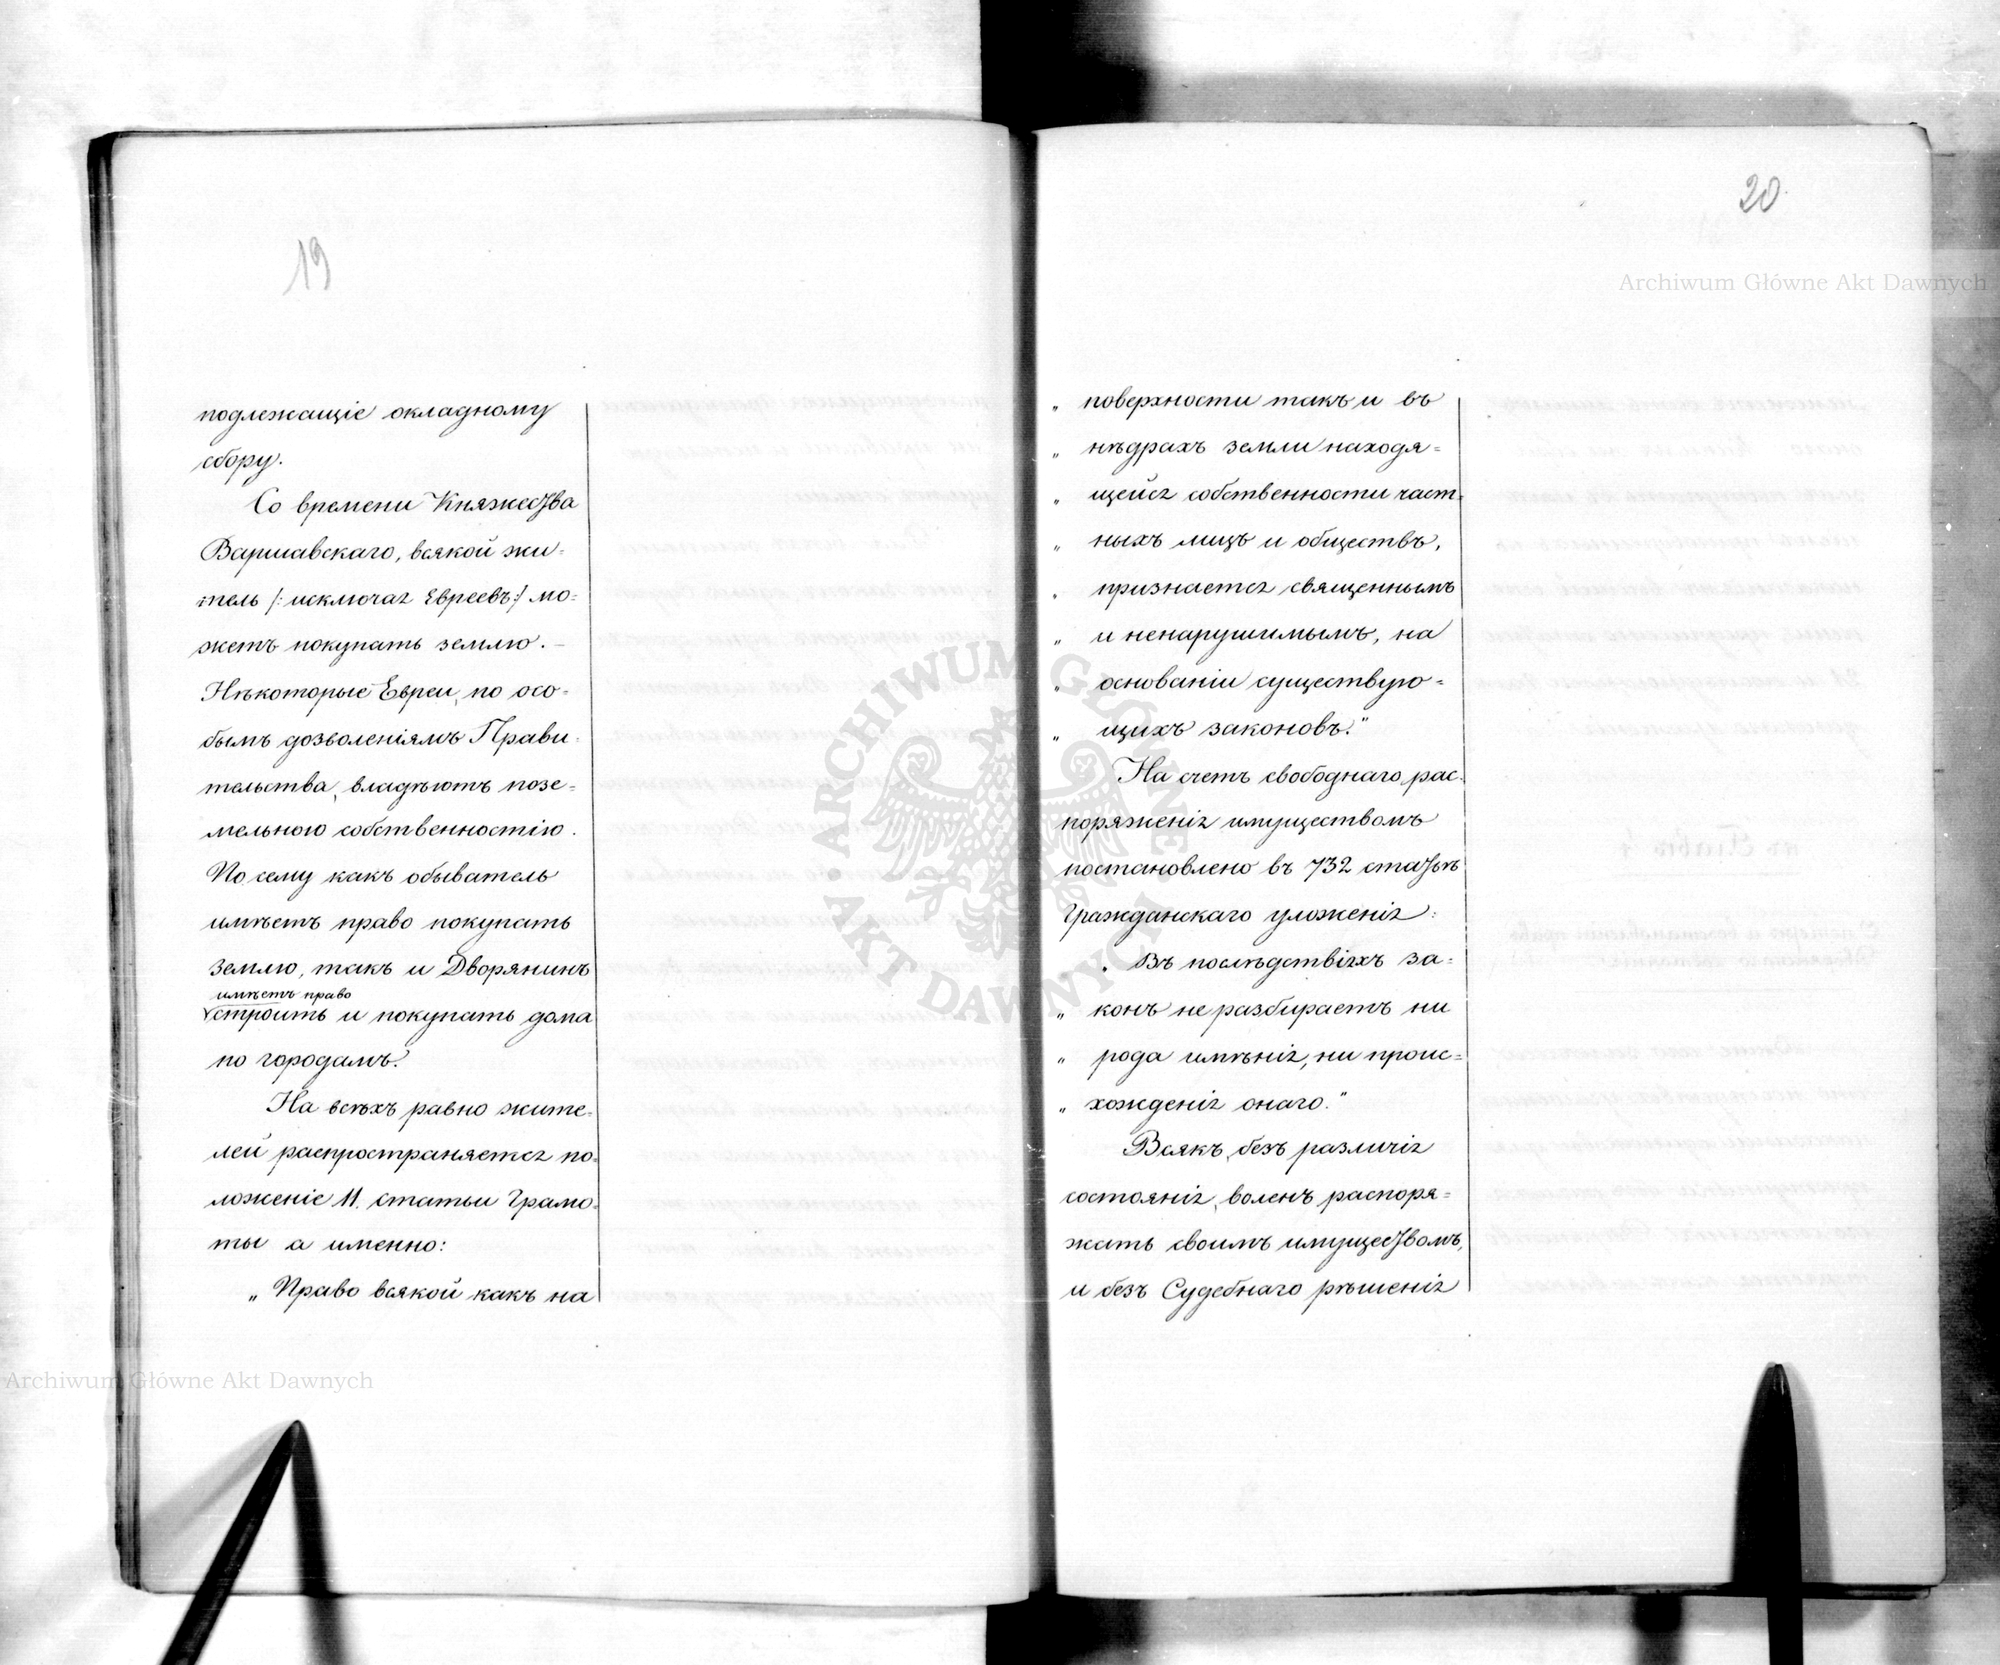 19
подлежащіе окладному
сбору.
Со времени Княжества
Варшавскаго, всякой жи-
тель /: исключая Евреевъ :/ мо-
жетъ покупать землю. —
Нѣкоторые Евреи, по осо-
бымъ дозволеніямъ Прави-
тельства, владѣютъ позе-
мельною собственностію.
По сему какъ обыватель
имѣетъ право покупать
землю, такъ и Дворянинъ
имѣетъ право
строить и покупать дома
по городамъ.
На всѣхъ равно жите-
лей распространяется по-
ложеніе 11. статьи Грамо-
ты а именно:
„ Право всякой какъ на
20
„ поверхности такъ и въ
„ нѣдрахъ земли находя-
„ щейся собственности част-
„ ныхъ лицъ и обществъ,
„ признается священнымъ
„ и ненарушимымъ, на
„ основаніи существую-
„ щихъ законовъ.“
На счетъ свободнаго рас-
поряженія имуществомъ
постановлено въ 732 статьѣ
Гражданскаго уложенія:
„ Въ послѣдствіяхъ за-
„ конъ не разбираетъ ни
„ рода имѣнія, ни проис-
„ хожденія онаго.“
Всякъ, безъ различія
состоянія, воленъ распоря-
жать своимъ имуществомъ,
и безъ Судебнаго рѣшенія
Archiwum Główne Akt Dawnych
Archiwum Główne Akt Dawnych
ARCHIWUM GŁÓWNE AKT DAWNYCH